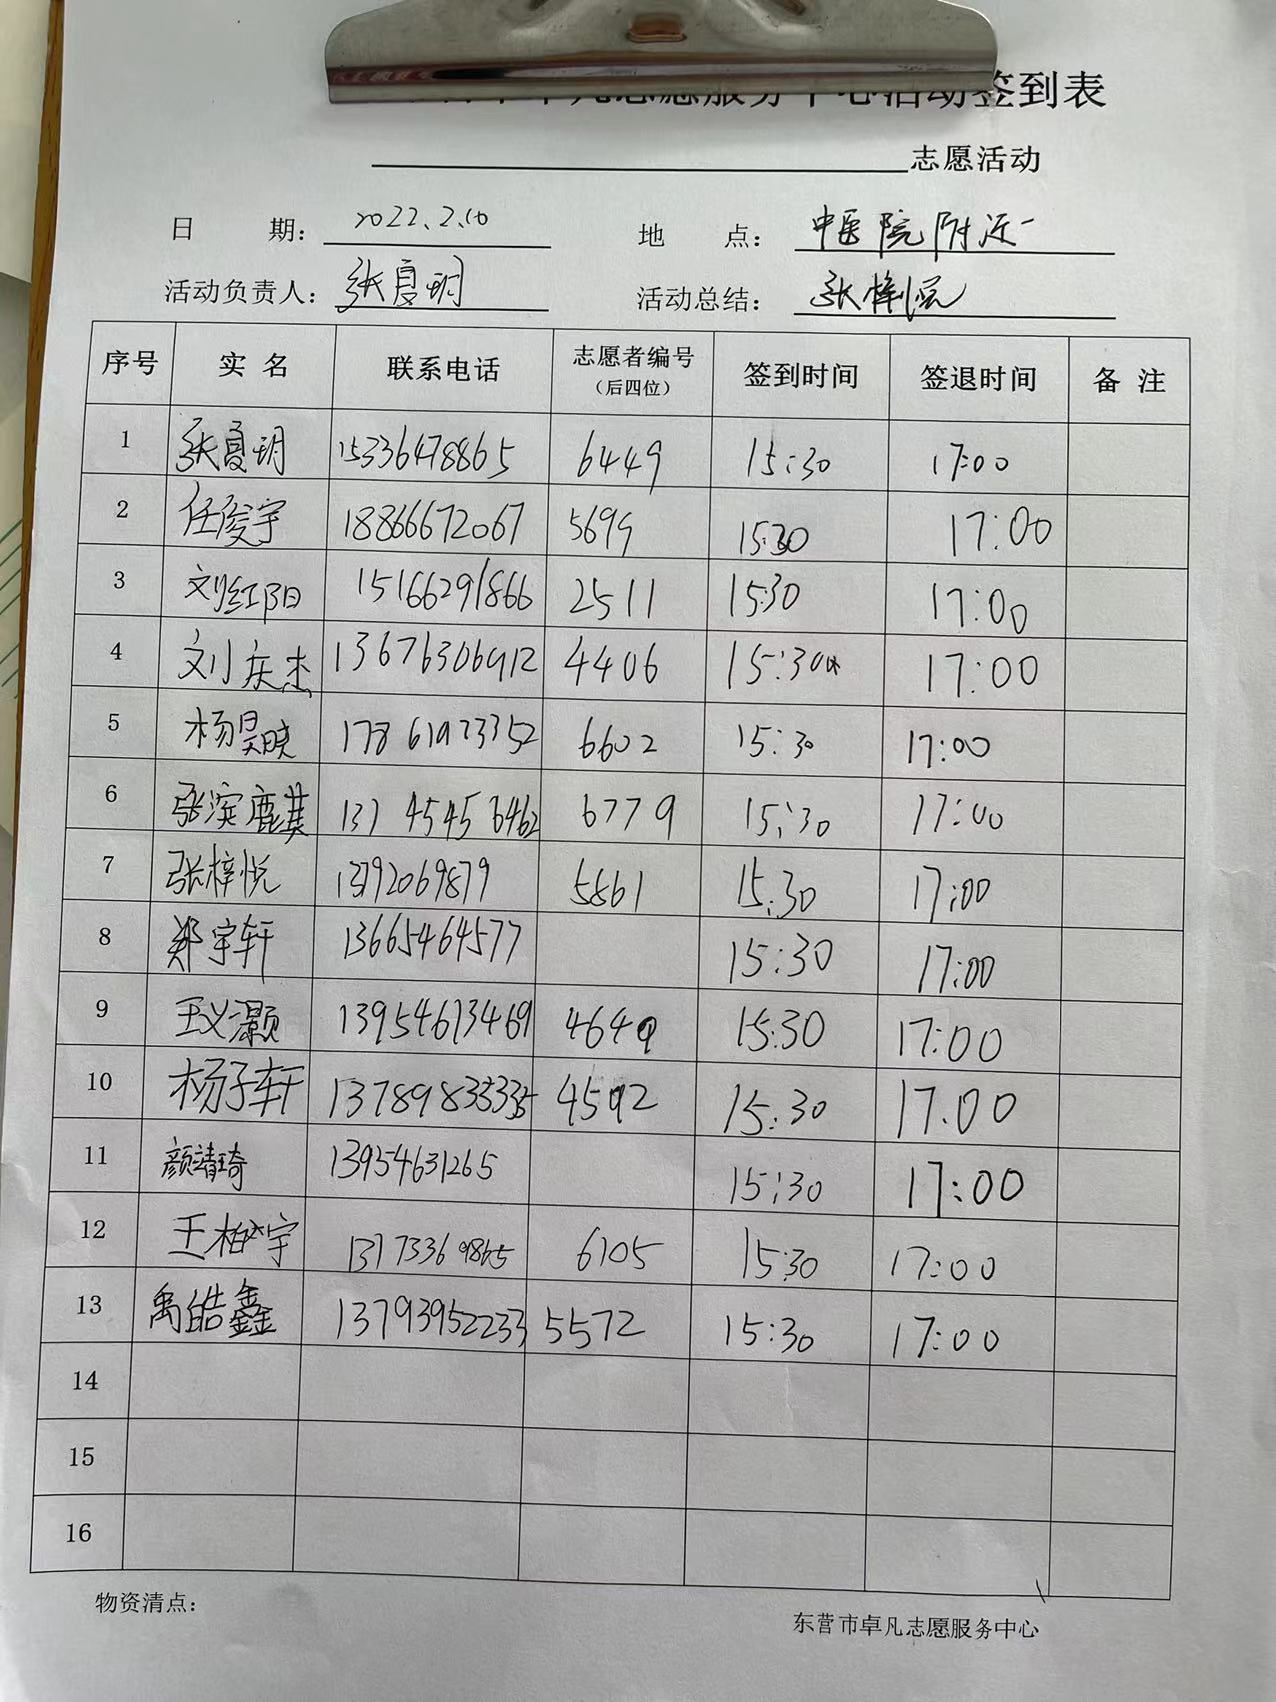 志愿服务中心活动签到表
志愿活动
日 期： 2022.2.10 地 点： 中医院附近
活动负责人： 张夏玥 活动总结： 张梓悦
序号 实 名 联系电话 志愿者编号（后四位） 签到时间 签退时间 备 注
1 张夏玥 15336478865 6449 15:30 17:00
2 任俊宇 18866672067 5699 15:30 17:00
3 刘红阳 15166291866 2511 15:30 17:00
4 刘庆杰 13676306912 4406 15:30 17:00
5 杨昊晓 17861923352 6602 15:30 17:00
6 张滨麒 13745456462 6779 15:30 17:00
7 张梓悦 13792069879 5861 15.30 17:00
8 郑宇轩 13665464577 15:30 17:00
9 王义灏 13954613469 4649 15:30 17:00
10 杨子轩 4592 15:30 17.00
11 颜靖琦 13954631265 15:30 17:00
12 王柏宇 13173369865 6105 15:30 17:00
13 禹皓鑫 13793952233 5572 15:30 17:00
14
15
16
物资清点：
东营市卓凡志愿服务中心